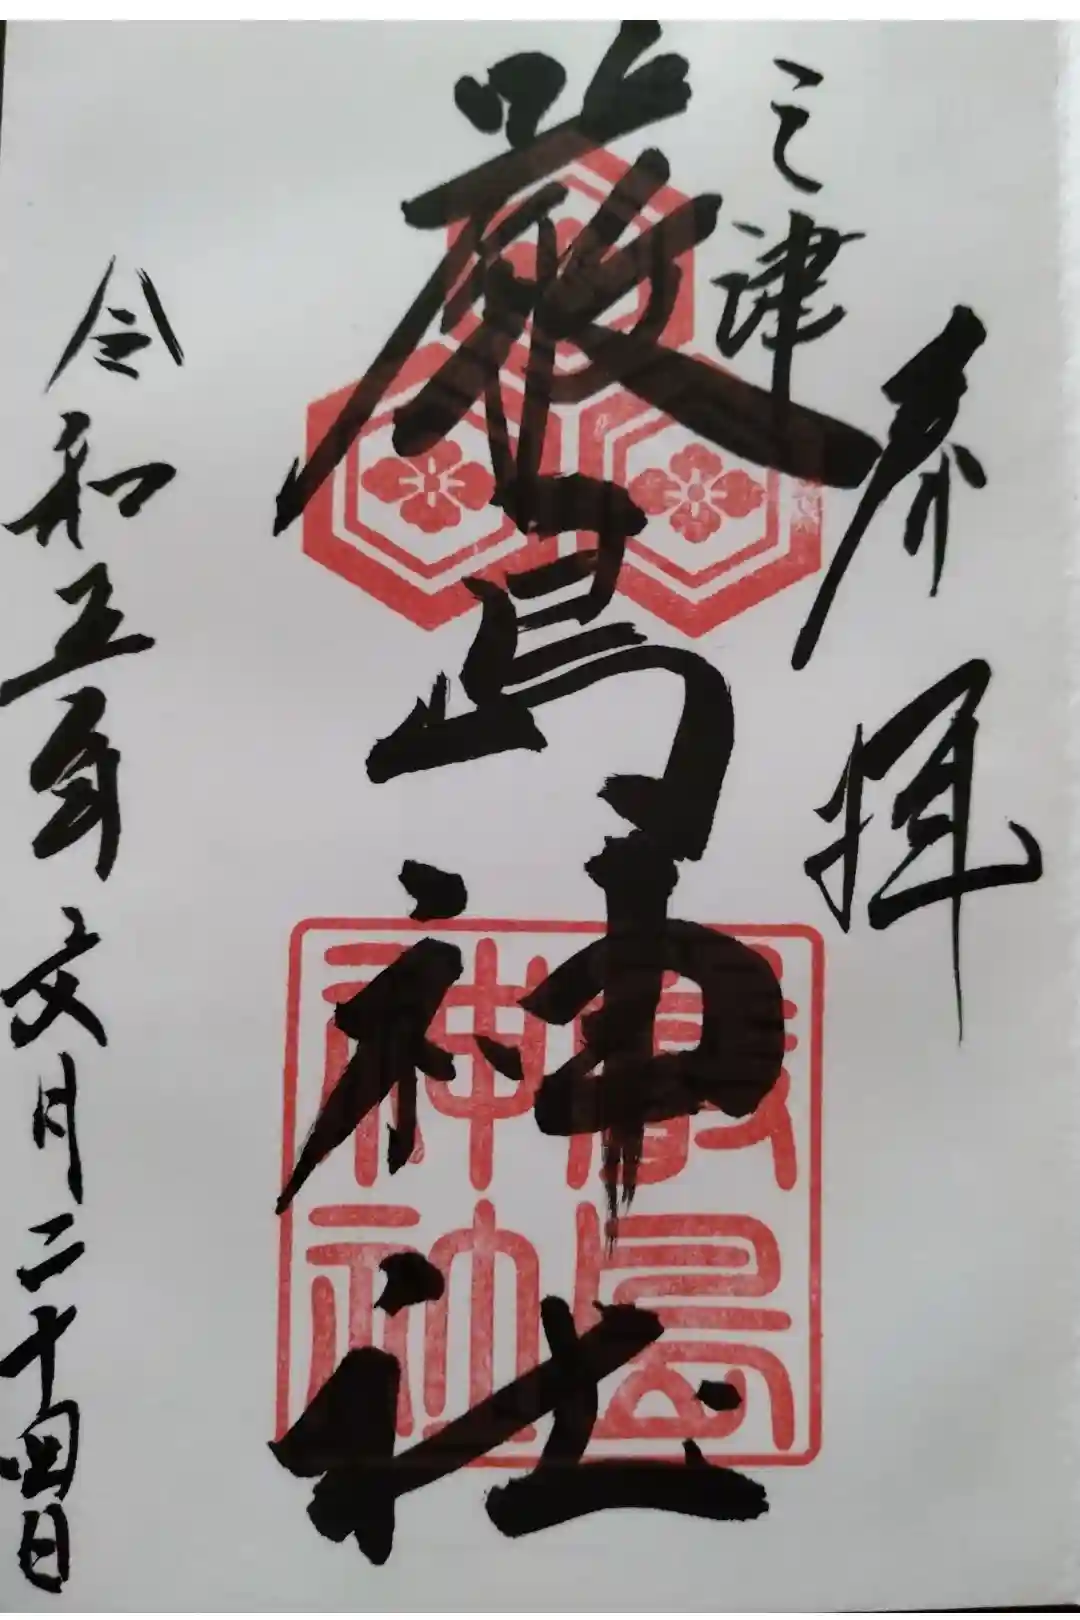 参拝
三津
厳島神社
嚴島
神社
令和五年文月二十四日